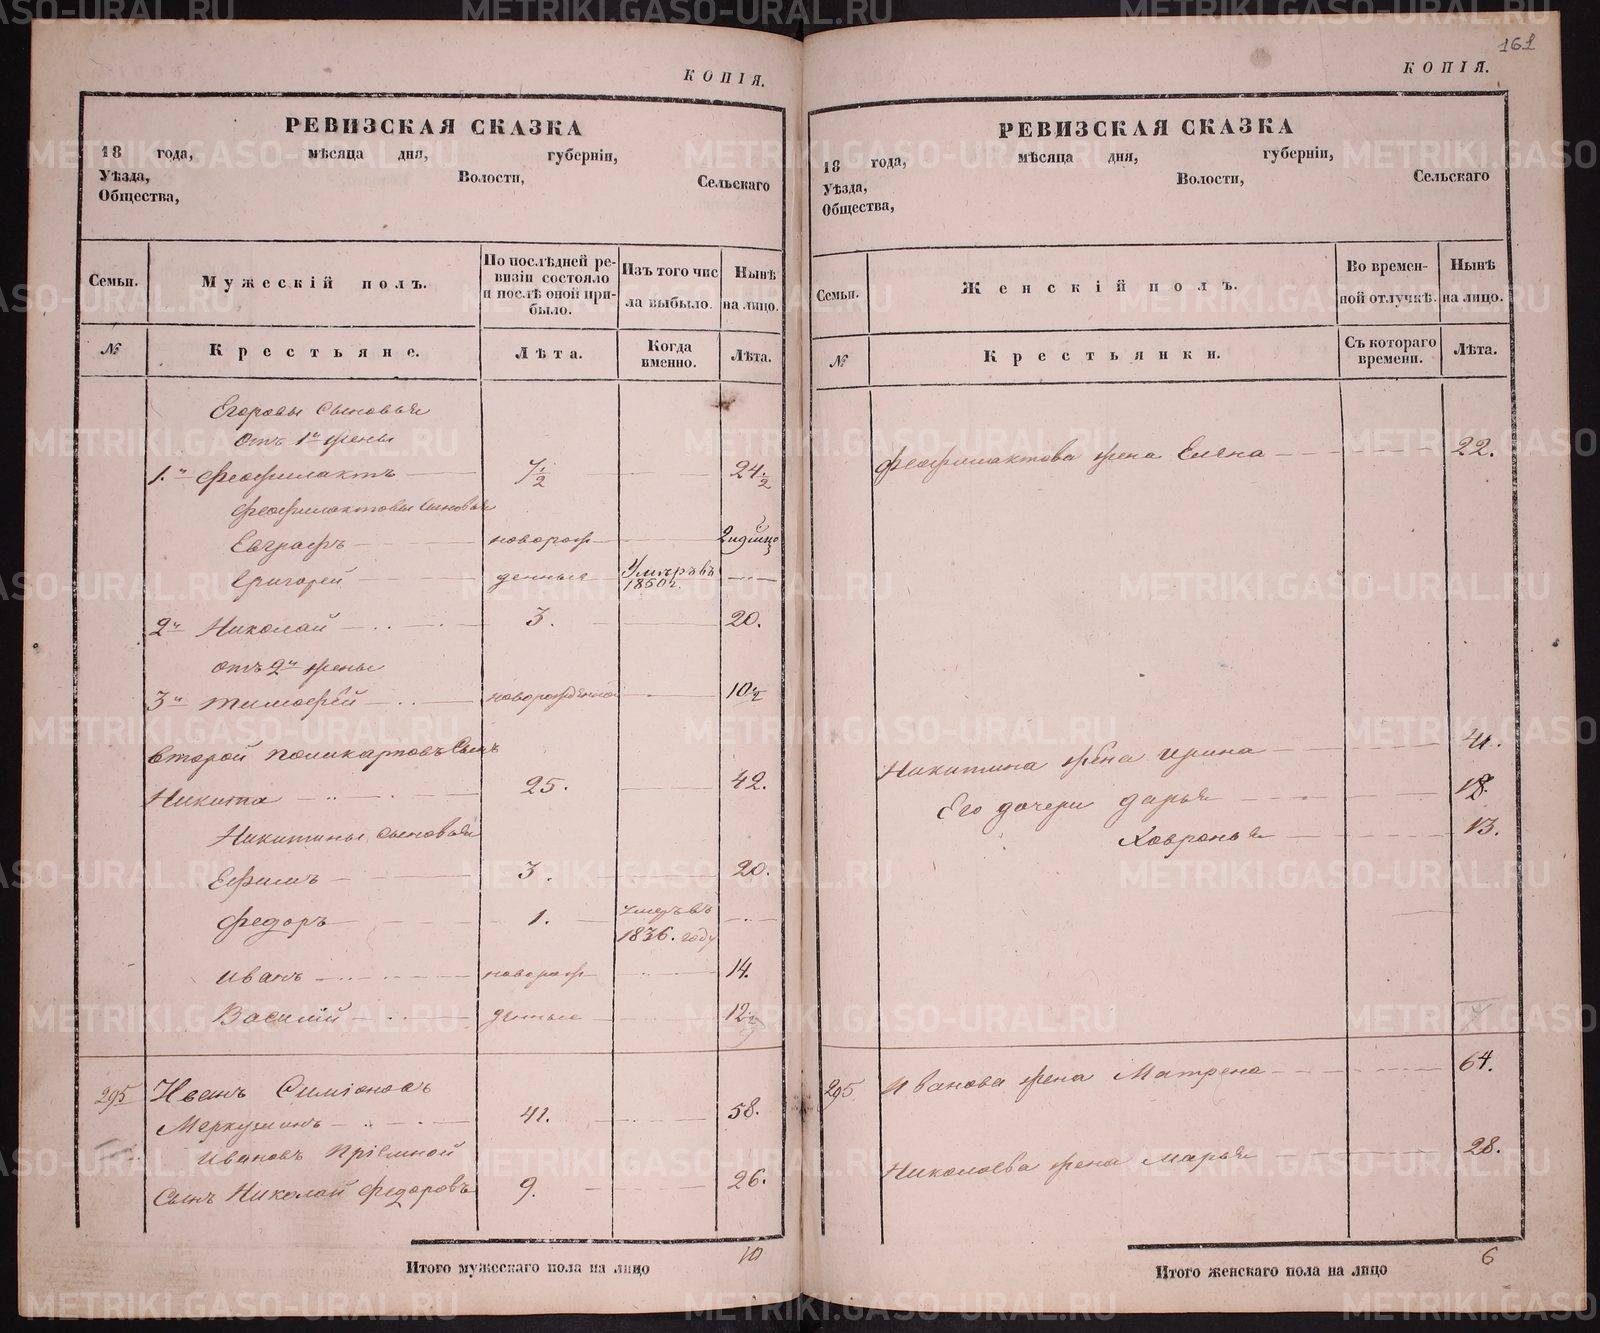 161
КОПІЯ.
РЕВИЗСКАЯ СКАЗКА
18 года, мѣсяца дня, губерніи,
Уѣзда, Волости, Сельскаго
Общества,
Семьи. Мужескій полъ. По послѣдней ревизіи состояло и послѣ оной прибыло. Изъ того числа выбыло. Нынѣ на лицо.
№ Крестьяне. Лѣта. Когда именно. Лѣта.
Егоровы сыновья
отъ 1й жены
1й Феофилактъ 7½ 24½
Феофилактовы сыновья
Евграфъ новорож
Григорей денные Умеръ въ 1850 г.
2й Николай 3. 20.
отъ 2й жены
3й Тимофей новорожденной 10½
второй Поликарповъ сынъ
Никита 25. 42.
Никитины сыновья
Ефимъ 3. 20.
Федоръ 1. умеръ въ 1836. году
Иванъ новорож 14.
Василій денные 12½
295 Иванъ Симіоновъ
Меркушинъ 41. 58.
Ивановъ Пріемной
Сынъ Николай Федоровъ 9. 26.
Итого мужескаго пола на лицо 10
КОПІЯ.
РЕВИЗСКАЯ СКАЗКА
18 года, мѣсяца дня, губерніи,
Уѣзда, Волости, Сельскаго
Общества,
Семьи. Женскій полъ. Во временной отлучкѣ. Нынѣ на лицо.
№ Крестьянки. Съ котораго времени. Лѣта.
Феофилактова жена Елена 22.
Никитина жена Ирина 41.
Его дочери Дарья 18.
Ховронья 13.
295. Иванова жена Матрена 64.
Николаева жена Марья 28.
Итого женскаго пола на лицо 6
METRIKI.GASO-URAL.RU